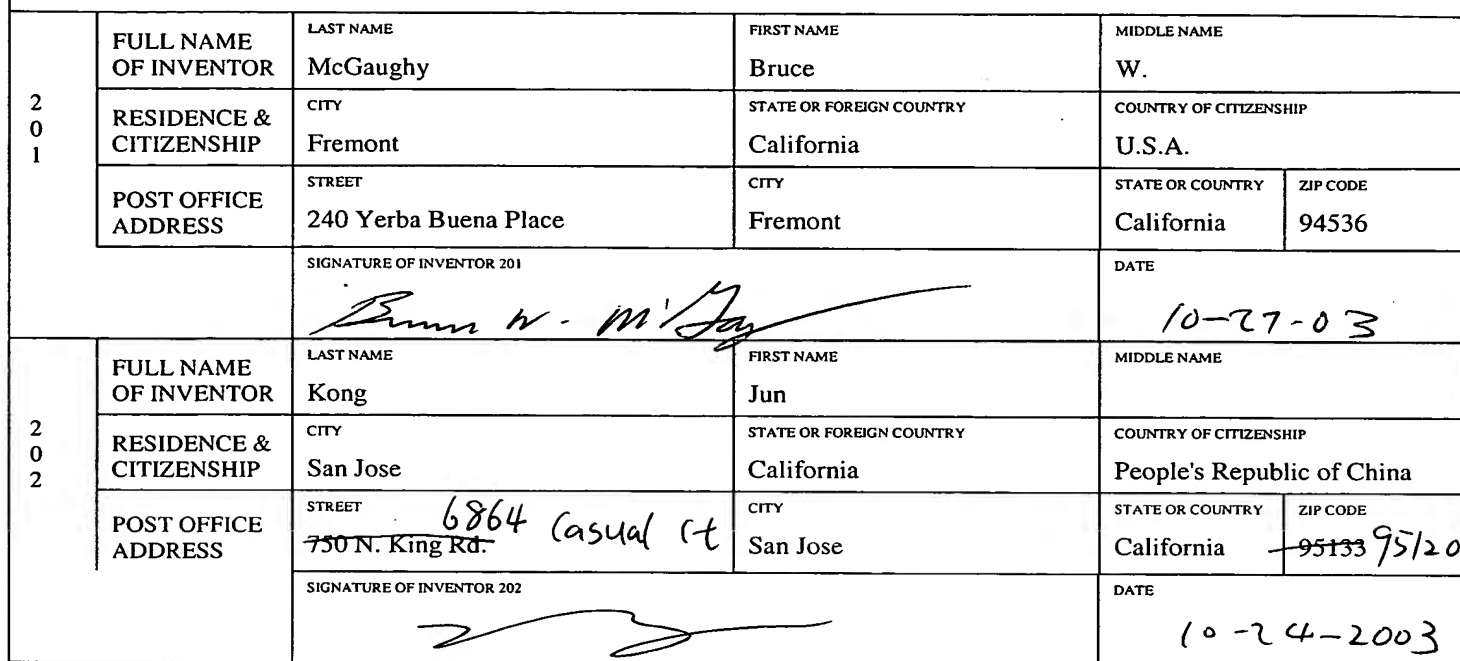 201
FULL NAME OF INVENTOR
LAST NAME
McGaughy
FIRST NAME
Bruce
MIDDLE NAME
W.
RESIDENCE & CITIZENSHIP
CITY
Fremont
STATE OR FOREIGN COUNTRY
California
COUNTRY OF CITIZENSHIP
U.S.A.
POST OFFICE ADDRESS
STREET
240 Yerba Buena Place
CITY
Fremont
STATE OR COUNTRY
California
ZIP CODE
94536
SIGNATURE OF INVENTOR 201
Bruce W. McGaughy
DATE
10-27-03
202
FULL NAME OF INVENTOR
LAST NAME
Kong
FIRST NAME
Jun
MIDDLE NAME
RESIDENCE & CITIZENSHIP
CITY
San Jose
STATE OR FOREIGN COUNTRY
California
COUNTRY OF CITIZENSHIP
People's Republic of China
POST OFFICE ADDRESS
STREET
750 N. King Rd.
6864 Casual Ct
CITY
San Jose
STATE OR COUNTRY
California
ZIP CODE
95133 95120
SIGNATURE OF INVENTOR 202
DATE
10-24-2003